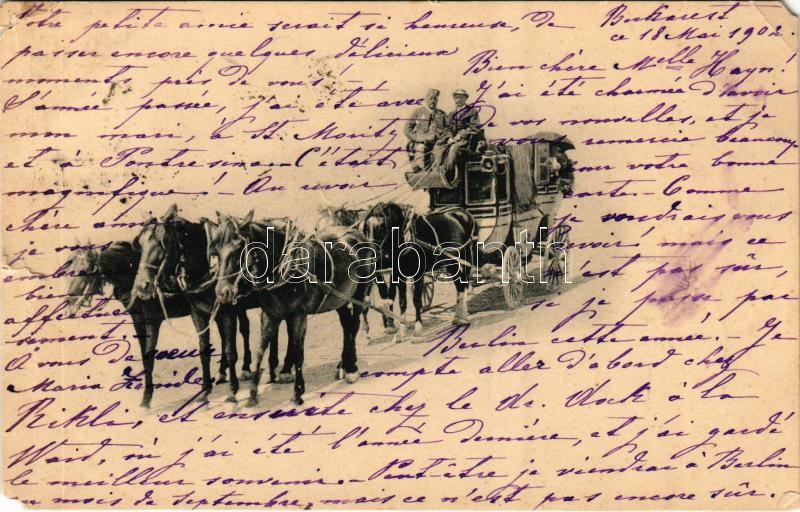 Bukarest
ce 18 Mai 1902.
Bien chère Melle Hayn!
J'ai été charmée d'avoir
de vos nouvelles, et je
vous remercie beaucoup
pour votre bonne
carte. Comme
je voudrais vous
revoir! mais ce
n'est pas sûr,
si je passe par
Berlin cette année, - Je
compte aller d'abord chez
Rikli, et ensuite chez le dr. à la
Waid, où j'ai été l'année dernière, et j'ai gardé
le meilleur souvenir. - Peut-être je viendrai à Berlin
au mois de septembre, mais ce n'est pas encore sûr.
Votre petite amie serait si heureuse, de
passer encore quelques délicieux
moments près de vous! -
L'année passée, j'ai été avec
mon mari, à St. Moritz
et à Pontresina. - C'était
magnifique! - Au revoir
chère amie
je vous
em
bien
affectueu-
sement. -
A vous de coeur
Maria
darabanth